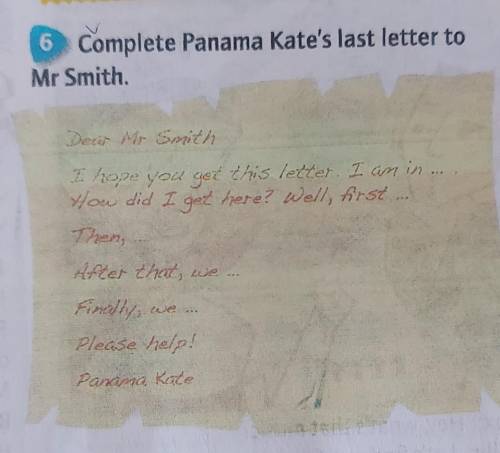 6 Complete Panama Kate's last letter to
Mr Smith.
Dear Mr Smith
I hope you get this letter. I am in ... .
How did I get here? Well, first ...
Then, ...
After that, we ...
Finally, we ...
Please help!
Panama Kate